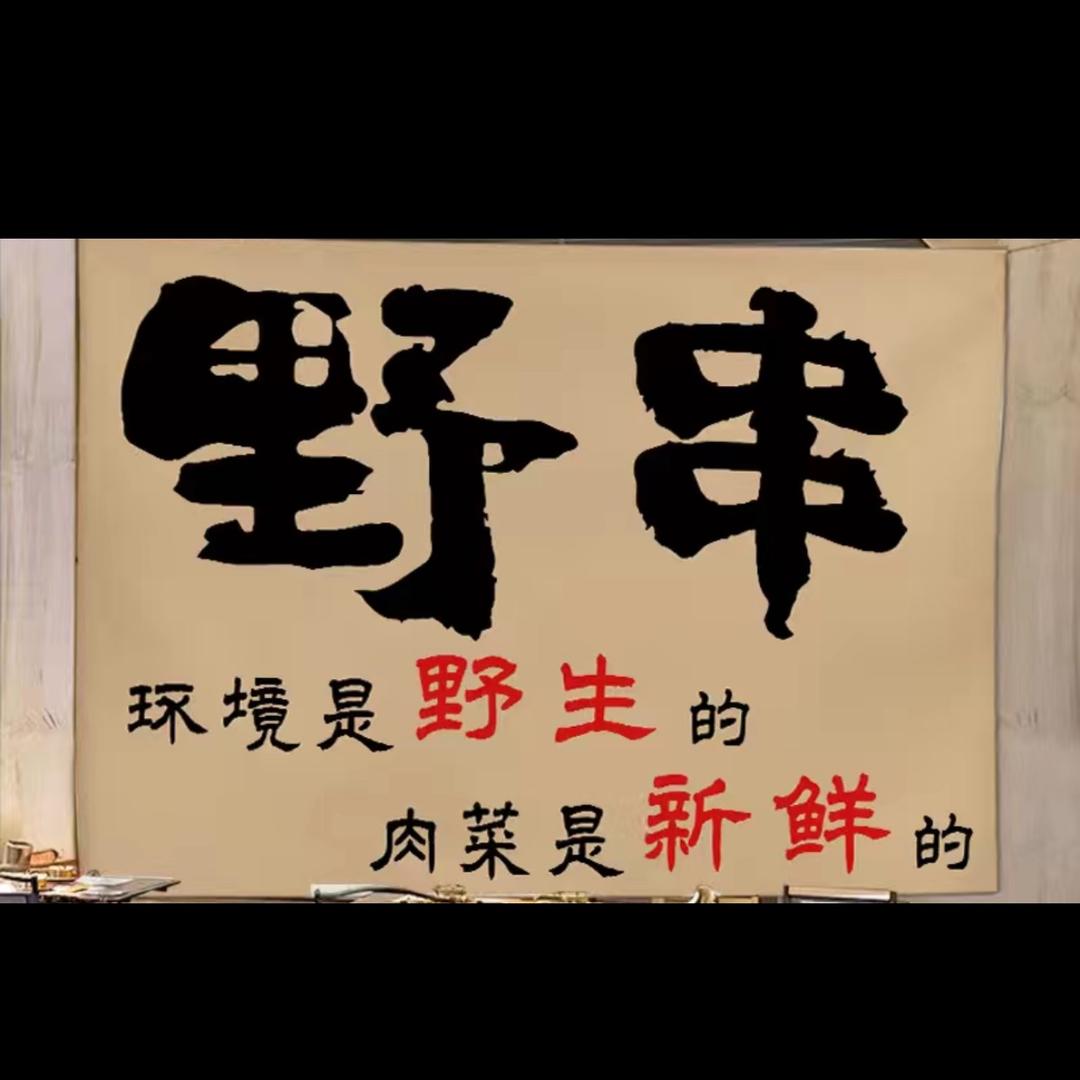 野串
环境是野生的
肉菜是新鲜的